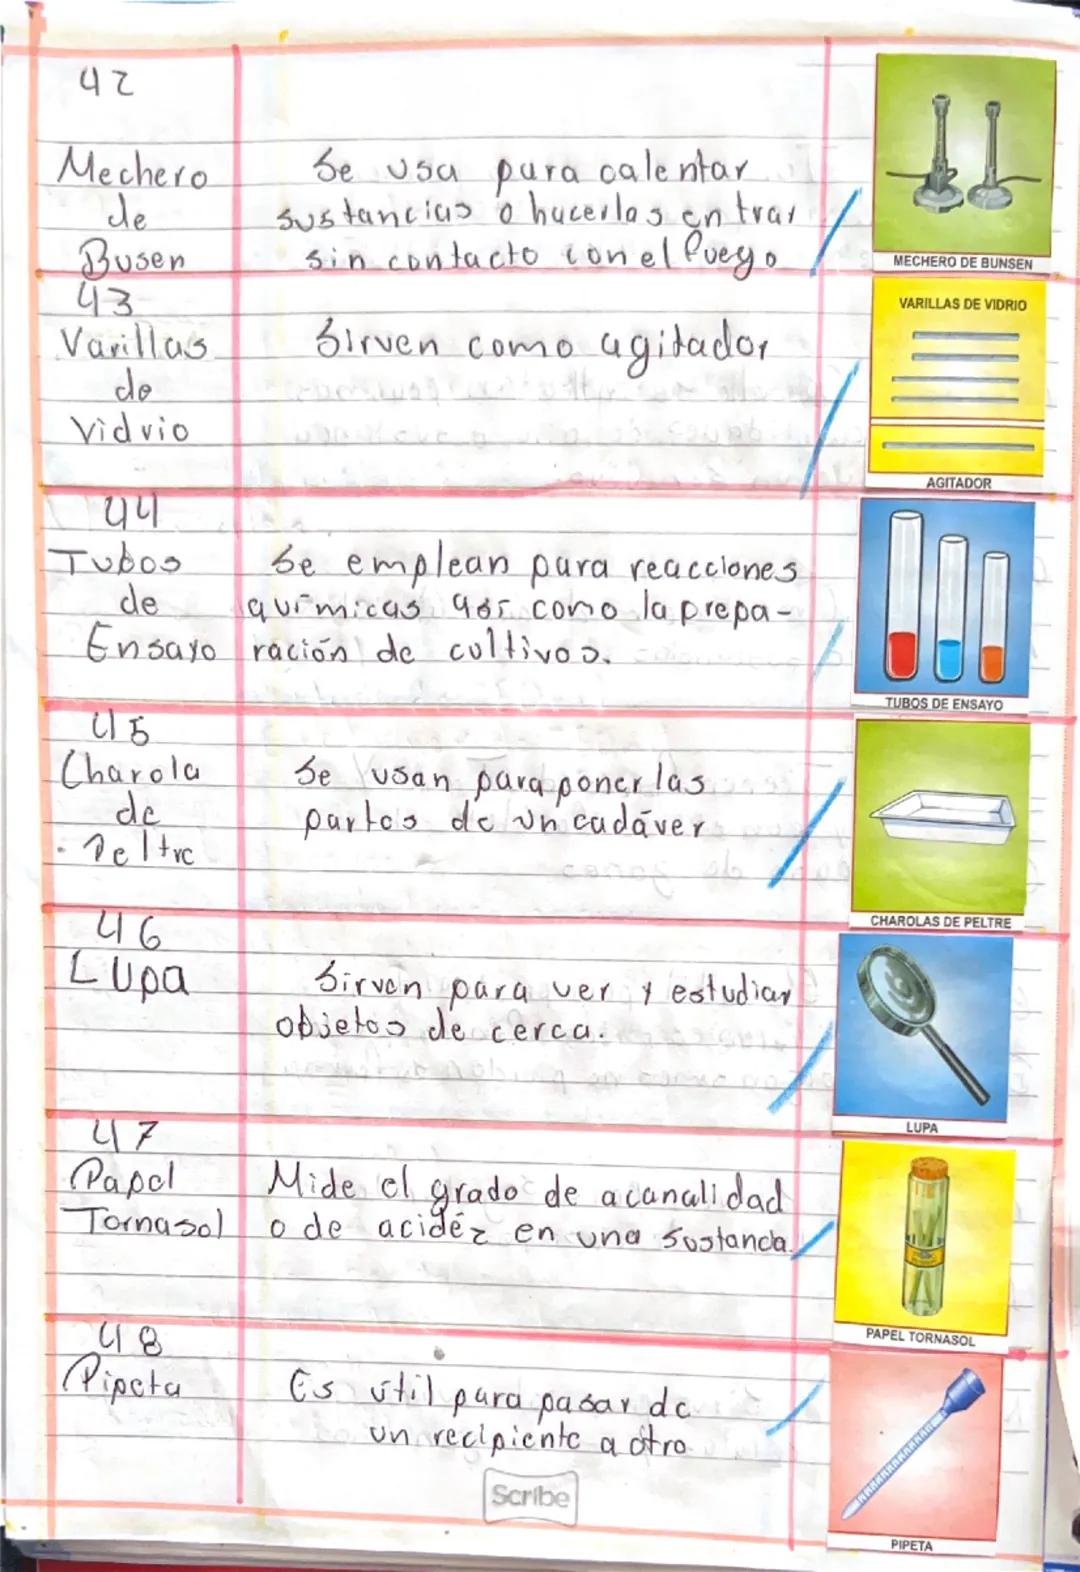 42
Mechero
de
Busen
Se usa para calentar
sustancias o hacerlas entrar
sin contacto con el fuego
MECHERO DE BUNSEN
43
Varillas
de
Vidrio
Sirven como agitador
VARILLAS DE VIDRIO
AGITADOR
44
Tubos
de
Ensayo
Se emplean para reacciones
químicas así como la prepa-
ración de cultivos.
TUBOS DE ENSAYO
45
Charola
de
Peltre
Se usan para poner las
partes de un cadáver
CHAROLAS DE PELTRE
46
Lupa
Sirven para ver y estudiar
objetos de cerca.
LUPA
47
Papel
Tornasol
Mide el grado de acanalidad
o de acidéz en una sustancia.
PAPEL TORNASOL
48
Pipeta
Es útil para pasar de
un recipiente a otro
PIPETA
Scribe